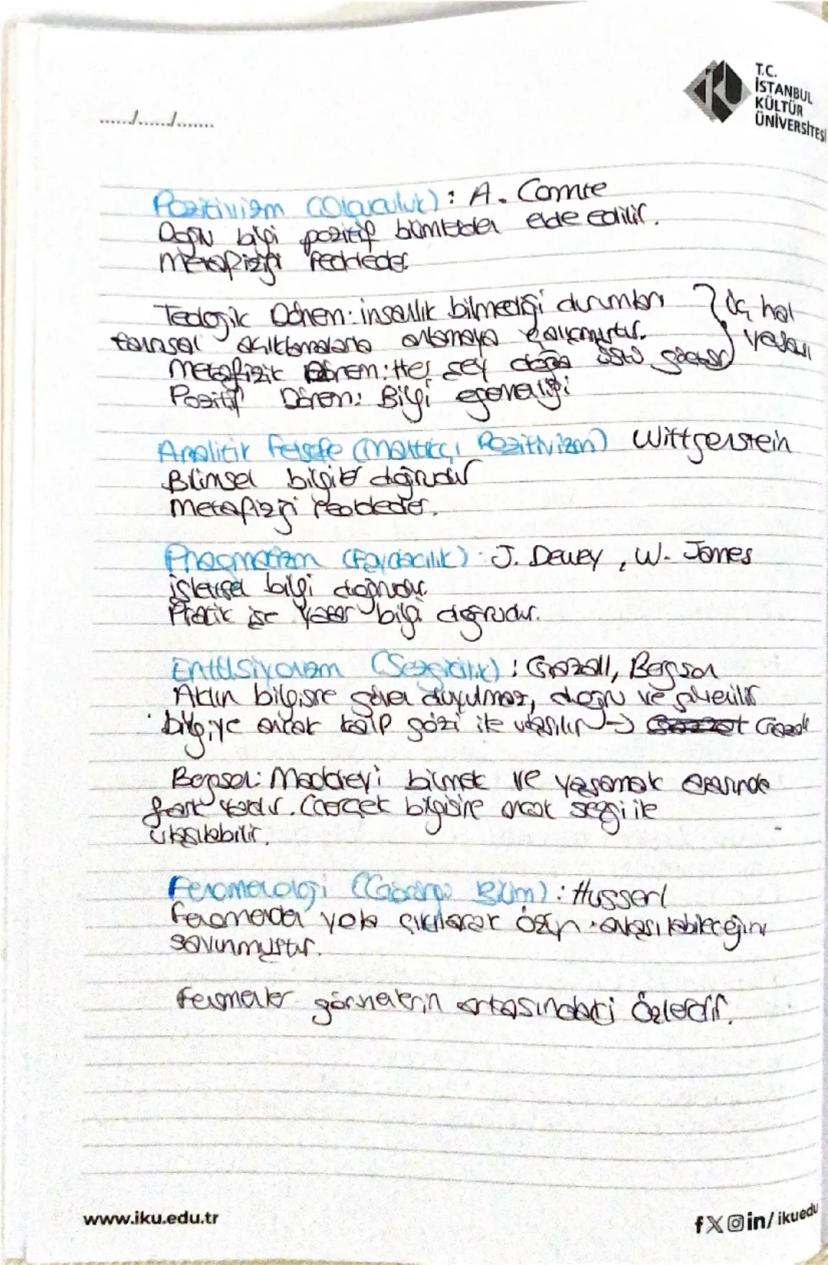 T.C.
İSTANBUL
KÜLTÜR
ÜNİVERSİTESİ
....../....../.......
Pozitivizm (Olguculuk): A. Comte
Doğru bilgi pozitif bilimlerden elde edilir.
Metafiziği reddeder
Teolojik Dönem: insanlık bilmediği durumları
tanrısal açıklamalarla anlamaya çalışmıştır.
Metafizik Dönem: Her şey doğa üstü güçtür
Pozitif Dönem: Bilgi egemenliği
Üç hal
yasası
Analitik Felsefe (Mantıkçı Pozitivizm) Wittgenstein
Bilimsel bilgiler doğrudur
Metafiziği reddeder.
Pragmatizm (Faydacılık): J. Dewey, W. James
işlevsel bilgi doğrudur.
Pratik işe yarar bilgi doğrudur.
Entüisyonizm (Sezgicilik): Gazali, Bergson
Aklın bilgisine güven duyulmaz, doğru ve güvenilir
bilgiye ancak kalp gözü ile ulaşılır → Gazali
Bergson: Maddeyi bilmek ve yaşamak arasında
fark vardır. Gerçek bilgisine ancak sezgi ile
ulaşılabilir.
Fenomenoloji (Görüngü Bilim): Husserl
Fenomenden yola çıkılarak özün anlaşılabileceğini
savunmuştur.
Fenomenler görünenlerin arkasındaki özlerdir.
www.iku.edu.tr
in/ikuedu